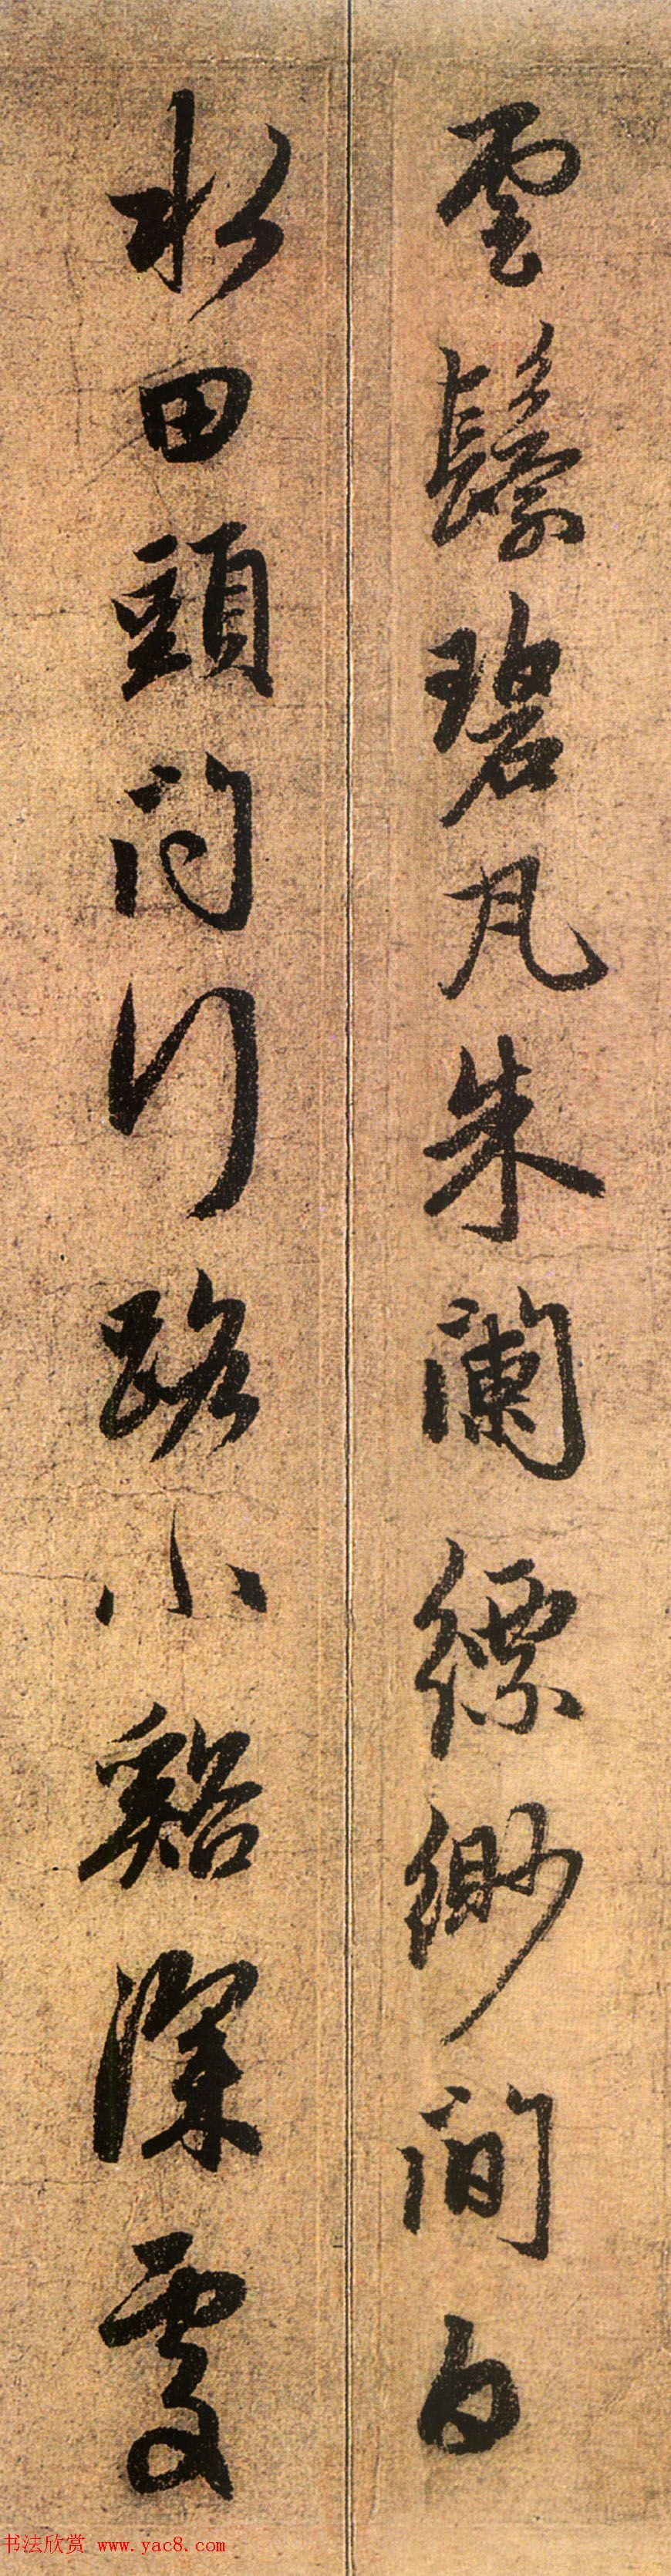 雲鬟碧瓦朱闌縹緲間白
水田頭問行路小谿深處
书法欣赏 www.yac8.com